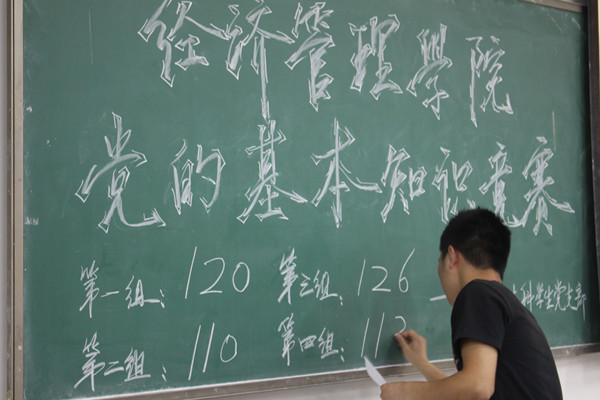 经济管理学院
党的基本知识竞赛
第一组：120 第三组：126
第二组：110 第四组：11
科学生党支部